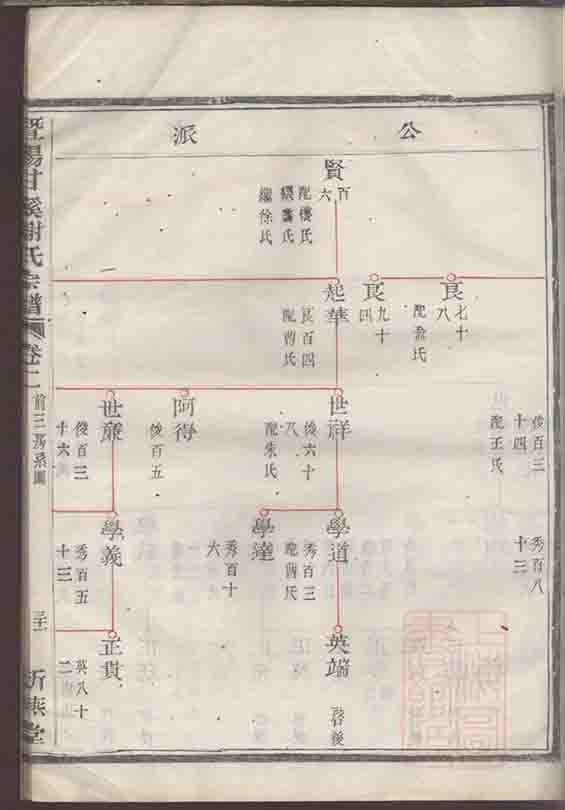 公派
賢
百六
配樓氏
繼徐氏
良
七十八
良
九十四
起華
良百四
世祥
俊六十八
配朱氏
阿得
俊百五
世廉
俊百三十六
俊百三十四
配王氏
學道
秀百三
學達
秀百十六
學義
秀百五十三
秀百八十三
英端
啓後
正貴
英八十二
暨陽甘溪謝氏宗譜
卷二
前三房系圖